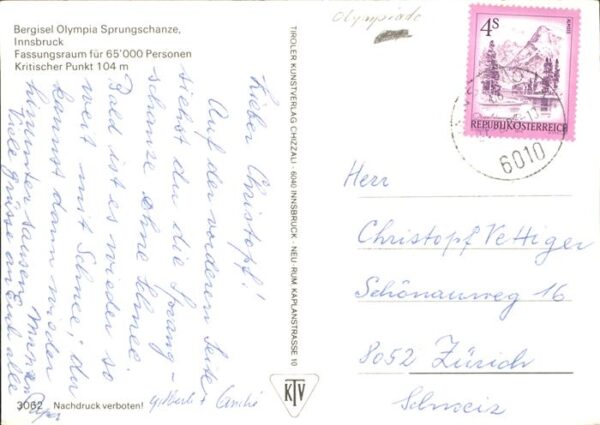 Bergisel Olympia Sprungschanze,
Innsbruck
Fassungsraum für 65'000 Personen
Kritischer Punkt 104 m
Olympiade
Lieber Christoph!
Auf der vorderen Seite
siehst du die Sprung-
schanze ohne Schnee
Bald ist es wieder so
weit mit Schnee, du
kannst dann wieder
hinuntersausen
Viele Grüsse an Euch alle
3062 Nachdruck verboten!
TIROLER KUNSTVERLAG CHIZZALI · 6040 INNSBRUCK · NEU-RUM, KAPLANSTRASSE 10
KTV
4S
REPUBLIK ÖSTERREICH
6010
Herr
Christopf Vettiger
Schönauweg 16
8052 Zürich
Schweiz